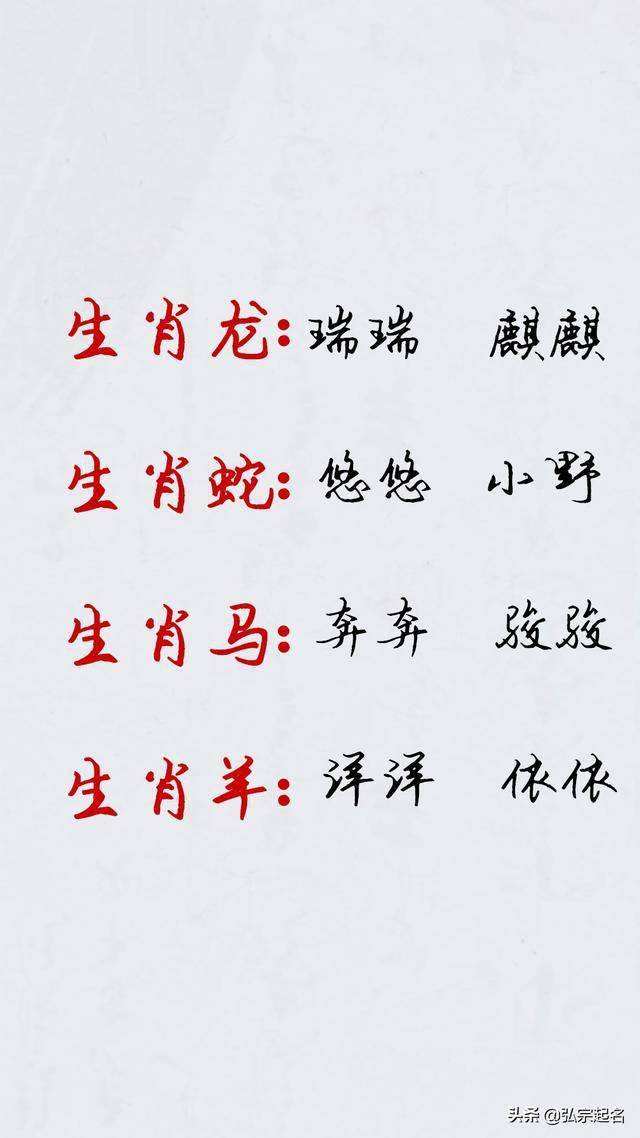 生肖龙：瑞瑞 麒麒
生肖蛇：悠悠 小野
生肖马：奔奔 骏骏
生肖羊：洋洋 依依
头条 @弘宗起名